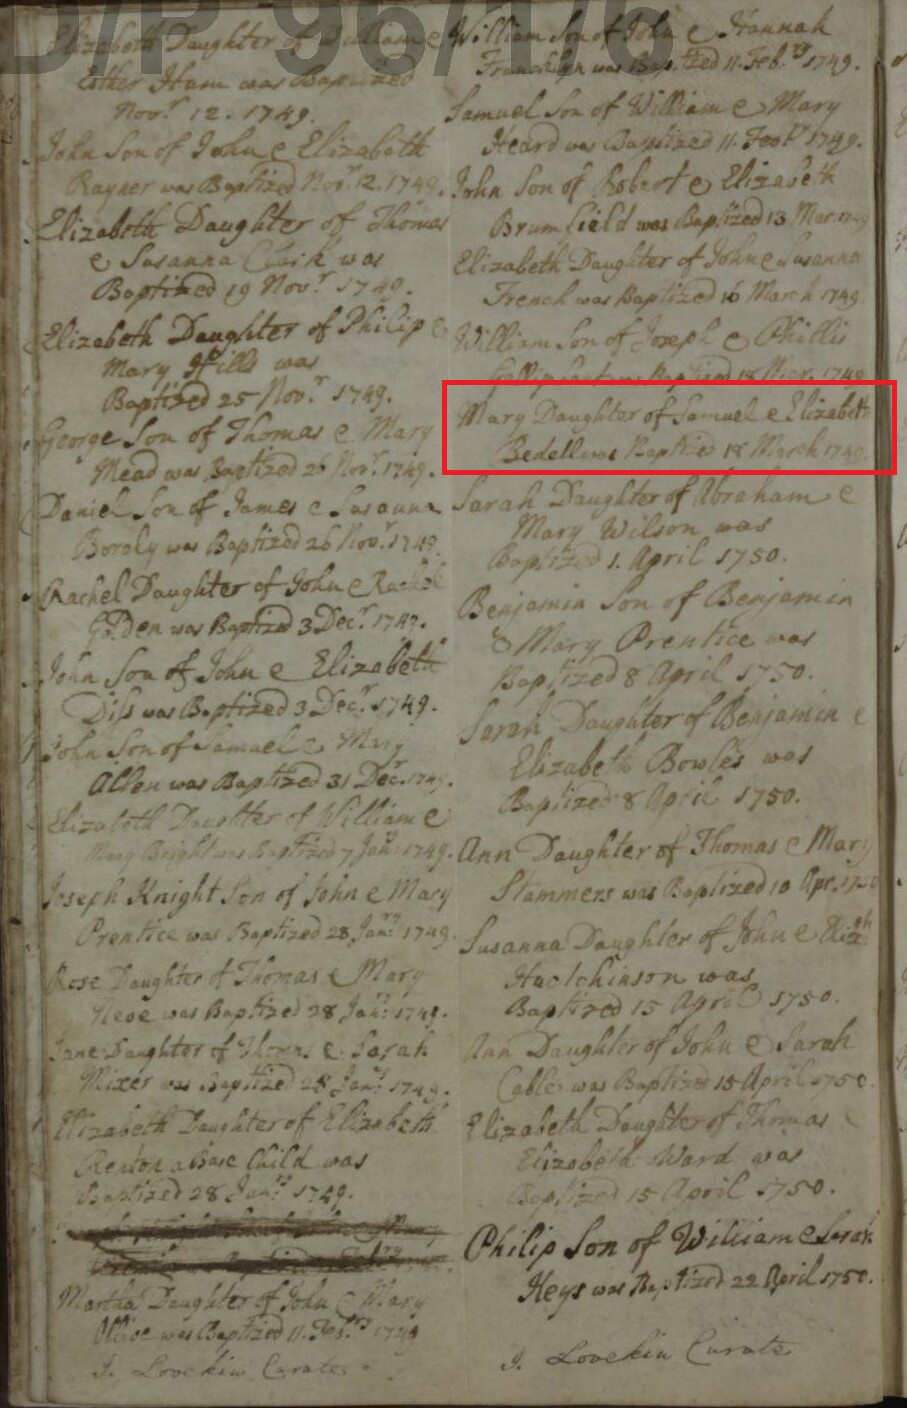 D/P 96/1/6
Elizabeth Daughter of William e
Esther Ham was Baptized
Novr 12. 1749.
John Son of John e Elizabeth
Rayner was Baptized Novr 12. 1749.
Elizabeth Daughter of Thomas
e Susanna Clark was
Baptized 19 Novr 1749.
Elizabeth Daughter of Philip e
Mary Hills was
Baptized 25 Novr 1749.
George Son of Thomas e Mary
Mead was Baptized 26 Novr 1749.
Daniel Son of James e Susanna
was Baptized 26 Novr 1749.
Rachel Daughter of John e Rachel
Golden was Baptized 3 Decr 1749.
John Son of John e Elizabeth
Diss was Baptized 3 Decr 1749.
John Son of Samuel e Mary
Allen was Baptized 31 Decr 1749.
Elizabeth Daughter of William e
Mary Bright was Baptized 7 Janry 1749.
Joseph Knight Son of John e Mary
Prentice was Baptized 28 Janry 1749.
Rose Daughter of Thomas e Mary
was Baptized 28 Janry 1749.
Jane Daughter of Thomas e Sarah
Mixer was Baptized 28 Janry 1749.
Elizabeth Daughter of Elizabeth
a Base Child was
Baptized 28 Janry 1749.
Martha Daughter of John e Mary
was Baptized 11. Febry 1749
J. Lovekin Curate
William Son of John e Hannah
was Baptized 11. Febry 1749.
Samuel Son of William e Mary
Heard was Baptized 11. Febry 1749.
John Son of Robert e Elizabeth
Brumfield was Baptized 13 Mar. 1749
Elizabeth Daughter of John e Susanna
French was Baptized 16 March 1749
William Son of Joseph e Phillis
was Baptized 18 Mar. 1749
Mary Daughter of Samuel e Elizabeth
Bedell was Baptized 18 March 1749.
Sarah Daughter of Abraham e
Mary Wilson was
Baptized 1. April 1750.
Benjamin Son of Benjamin
e Mary Prentice was
Baptized 8 April 1750.
Sarah Daughter of Benjamin e
Elizabeth Bowles was
Baptized 8 April 1750.
Ann Daughter of Thomas e Mary
Stammers was Baptized 10 Apr. 1750
Susanna Daughter of John e Elizth
Hutchinson was
Baptized 15 April 1750.
Ann Daughter of John e Sarah
Cable was Baptized 15 April 1750.
Elizabeth Daughter of Thomas e
Elizabeth Ward was
Baptized 15 April 1750.
Philip Son of William e Sarah
Keys was Baptized 22 April 1750.
J. Lovekin Curate